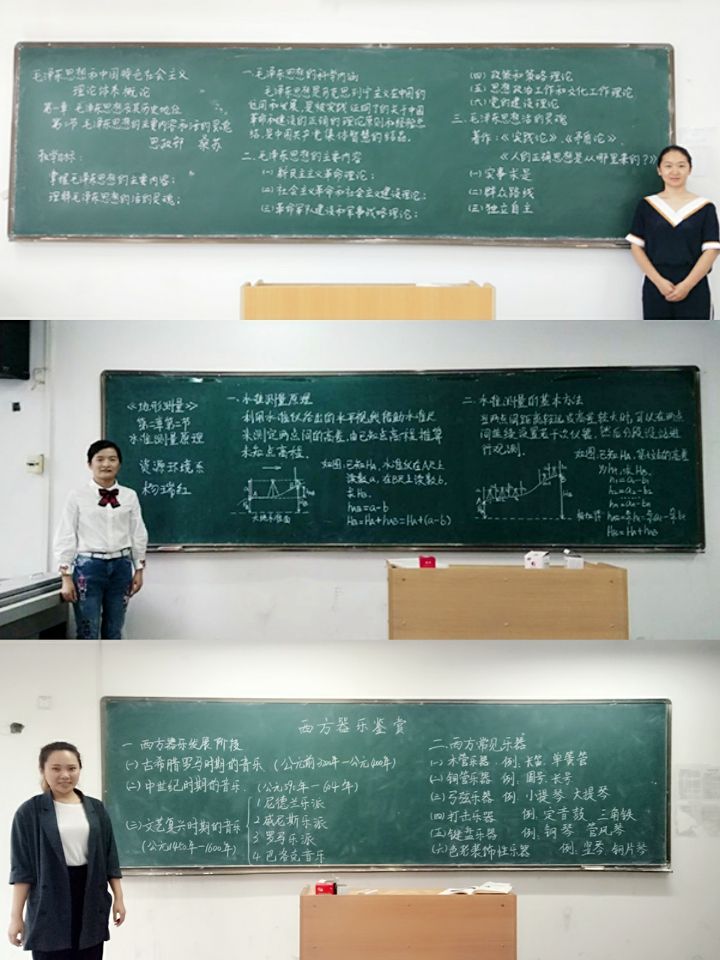 毛泽东思想和中国特色社会主义
理论体系概论
第一章 毛泽东思想及其历史地位
第二节 毛泽东思想的主要内容和活的灵魂
思政部 桑苏
教学目标:
掌握毛泽东思想的主要内容;
理解毛泽东思想的活的灵魂;
一.毛泽东思想的科学内涵
毛泽东思想是马克思列宁主义在中国的
运用和发展,是被实践证明了的关于中国
革命和建设的正确的理论原则和经验总
结,是中国共产党集体智慧的结晶。
二.毛泽东思想的主要内容
(一)新民主主义革命理论;
(二)社会主义革命和社会主义建设理论;
(三)革命军队建设和军事战略理论;
(四)政策和策略理论
(五)思想政治工作和文化工作理论
(六)党的建设理论
三.毛泽东思想活的灵魂
著作:《实践论》、《矛盾论》
《人的正确思想是从哪里来的?》
(一)实事求是
(二)群众路线
(三)独立自主
《地形测量》
第二章第一节
水准测量原理
资源环境系
杨瑞红
一.水准测量原理
利用水准仪给出的水平视线借助水准尺
来测定两点间的高差,由已知点高程推算
未知点高程.
如图:已知HA,水准仪在A尺上
读数a,在B尺上读数b,
求HB.
hAB=a-b
HB=HA+hAB=HA+(a-b)
大地水准面
二.水准测量的基本方法
当两点间距离较远或高差较大时,可以在两点
间连续设置若干次仪器,然后分段设站进
行观测.
如图:已知HA,某段站的高差
为hi,求HB.
h1=a1-b1
h2=a2-b2
HB=HA+hAB
西方器乐鉴赏
一 西方器乐发展阶段
(一)古希腊罗马时期的音乐
(二)中世纪时期的音乐.
(三)文艺复兴时期的音乐
(公元1450年-1600年)
1 尼德兰乐派
2 威尼斯乐派
3 罗马乐派
4 巴洛克音乐
二.西方常见乐器
(一)木管乐器 例.长笛.单簧管
(二)铜管乐器 例.圆号.长号
(三)弓弦乐器 例.小提琴 大提琴
(四)打击乐器 例.定音鼓 三角铁
(五)键盘乐器 例.钢琴 管风琴
(六)色彩装饰性乐器 例.竖琴.钢片琴